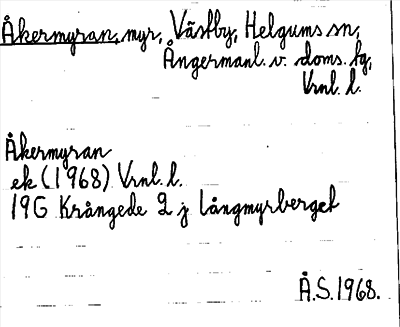 Åkermyran, myr, Västby, Helgums sn,
Ångermanl. v. doms. fg,
Vrnl. l.
Åkermyran
ek (1968) Vrnl. l.
19G Krångede 2 j Långmyrberget
Å.S. 1968.